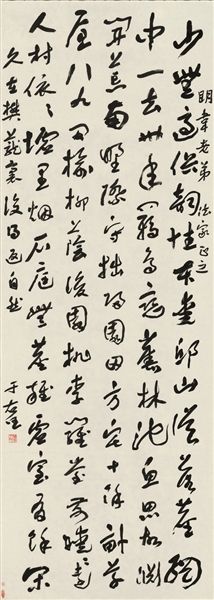 明韋老弟法家正之
少無適俗韻性本愛邱山誤落塵網
中一去卅年羈鳥戀舊林池魚思故淵
開荒南野際守拙歸園田方宅十餘畝草
屋八九間榆柳蔭後園桃李羅堂前曖曖遠
人村依依墟里烟戶庭無塵雜虛室有餘閑
久在樊籠裏復得返自然
于右任